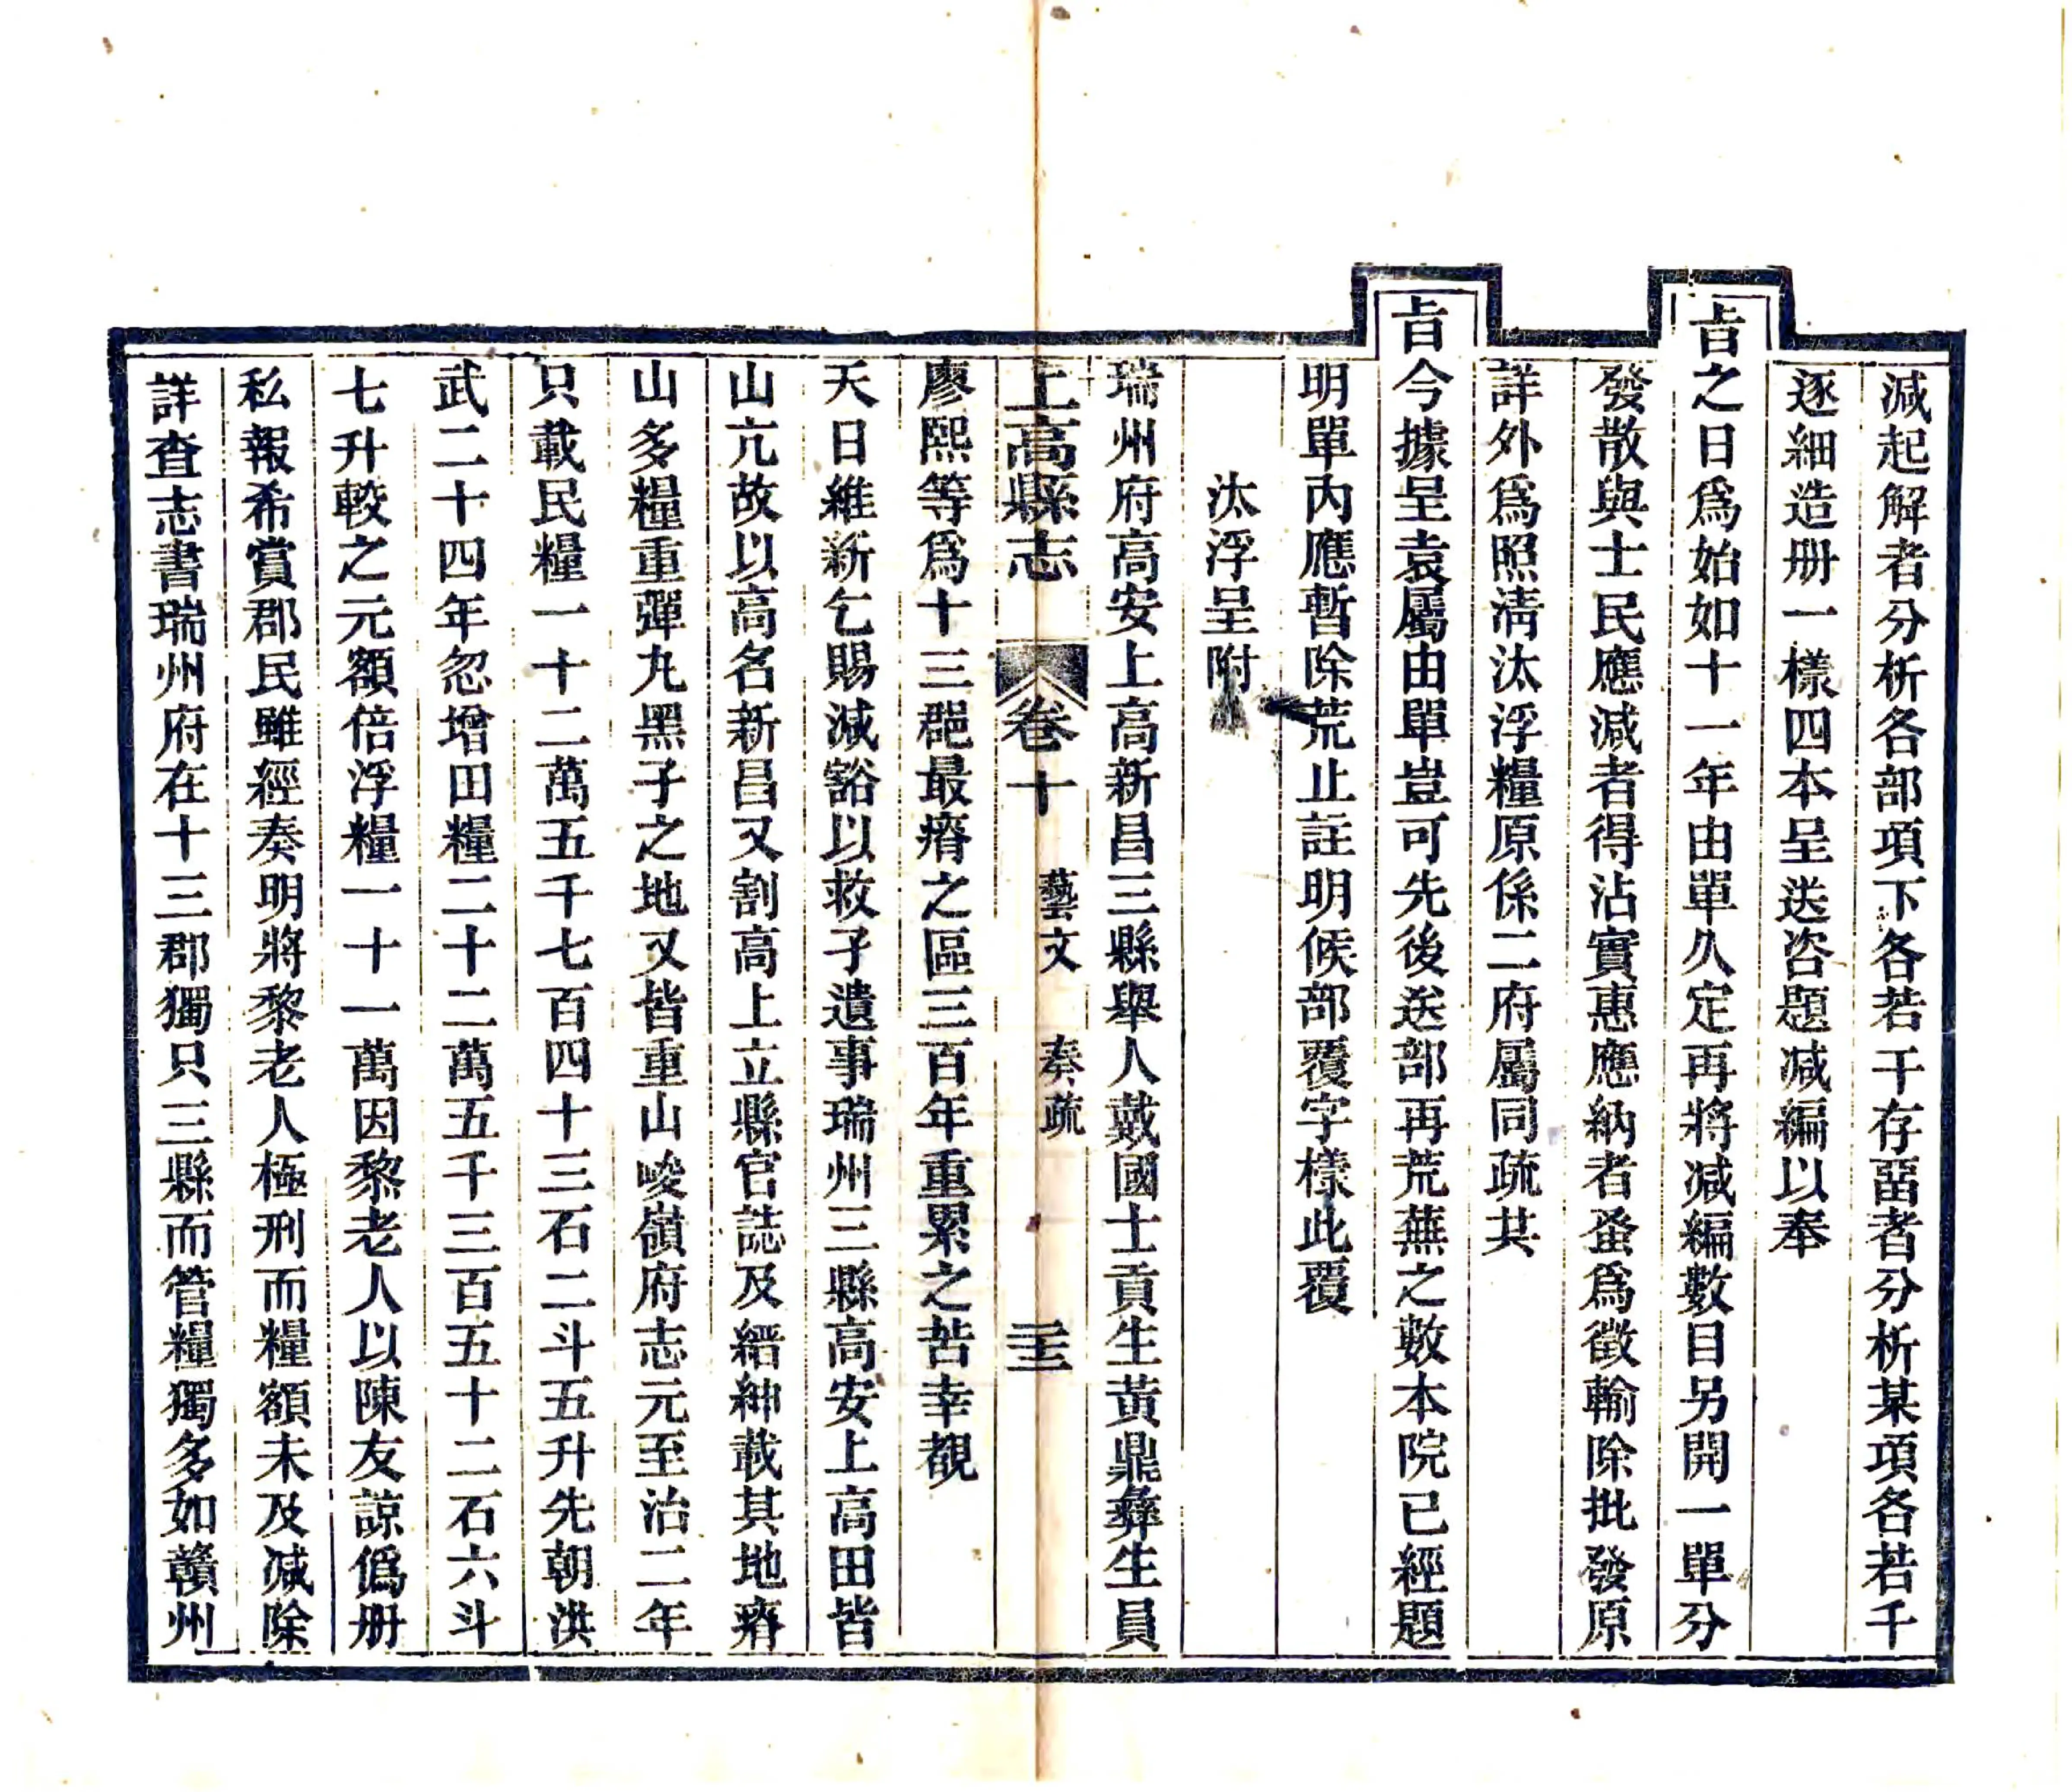 減起解者分析各部項下各若干存畱者分析某項各若千
逐細造册一樣四本呈送咨題減編以奉
㫖之日爲始如十一年由單久定再將減編數目另開一單分
發散與士民應減者得沾實惠應納者蚤爲徵輸除批發原
詳外爲照淸汰浮糧原係二府屬同疏共
㫖今據呈袁屬由單豈可先後送部再荒蕪之數本院已經題
明單內應暫除荒止註明候部覆字樣此覆
汰浮呈附
瑞州府高安上高新昌三縣舉人戴國士貢生黃鼎彝生員
上高縣志 卷十 藝文 奏疏 三十三
廖熙等爲十三郡最瘠之區三百年重累之苦幸覩
天日維新乞賜減豁以救孑遺事瑞州三縣高安上高田皆
山亢故以高名新昌又割高上立縣官誌及縉紳載其地瘠
山多糧重彈丸黑子之地又皆重山峻嶺府志元至治二年
只載民糧一十二萬五千七百四十三石二斗五升先朝洪
武二十四年忽增田糧二十二萬五千三百五十二石六斗
七升較之元額倍浮糧一十一萬因黎老人以陳友諒僞册
私報希賞郡民雖經奏明將黎老人極刑而糧額未及減除
詳查志書瑞州府在十三郡獨只三縣而管糧獨多如贛州